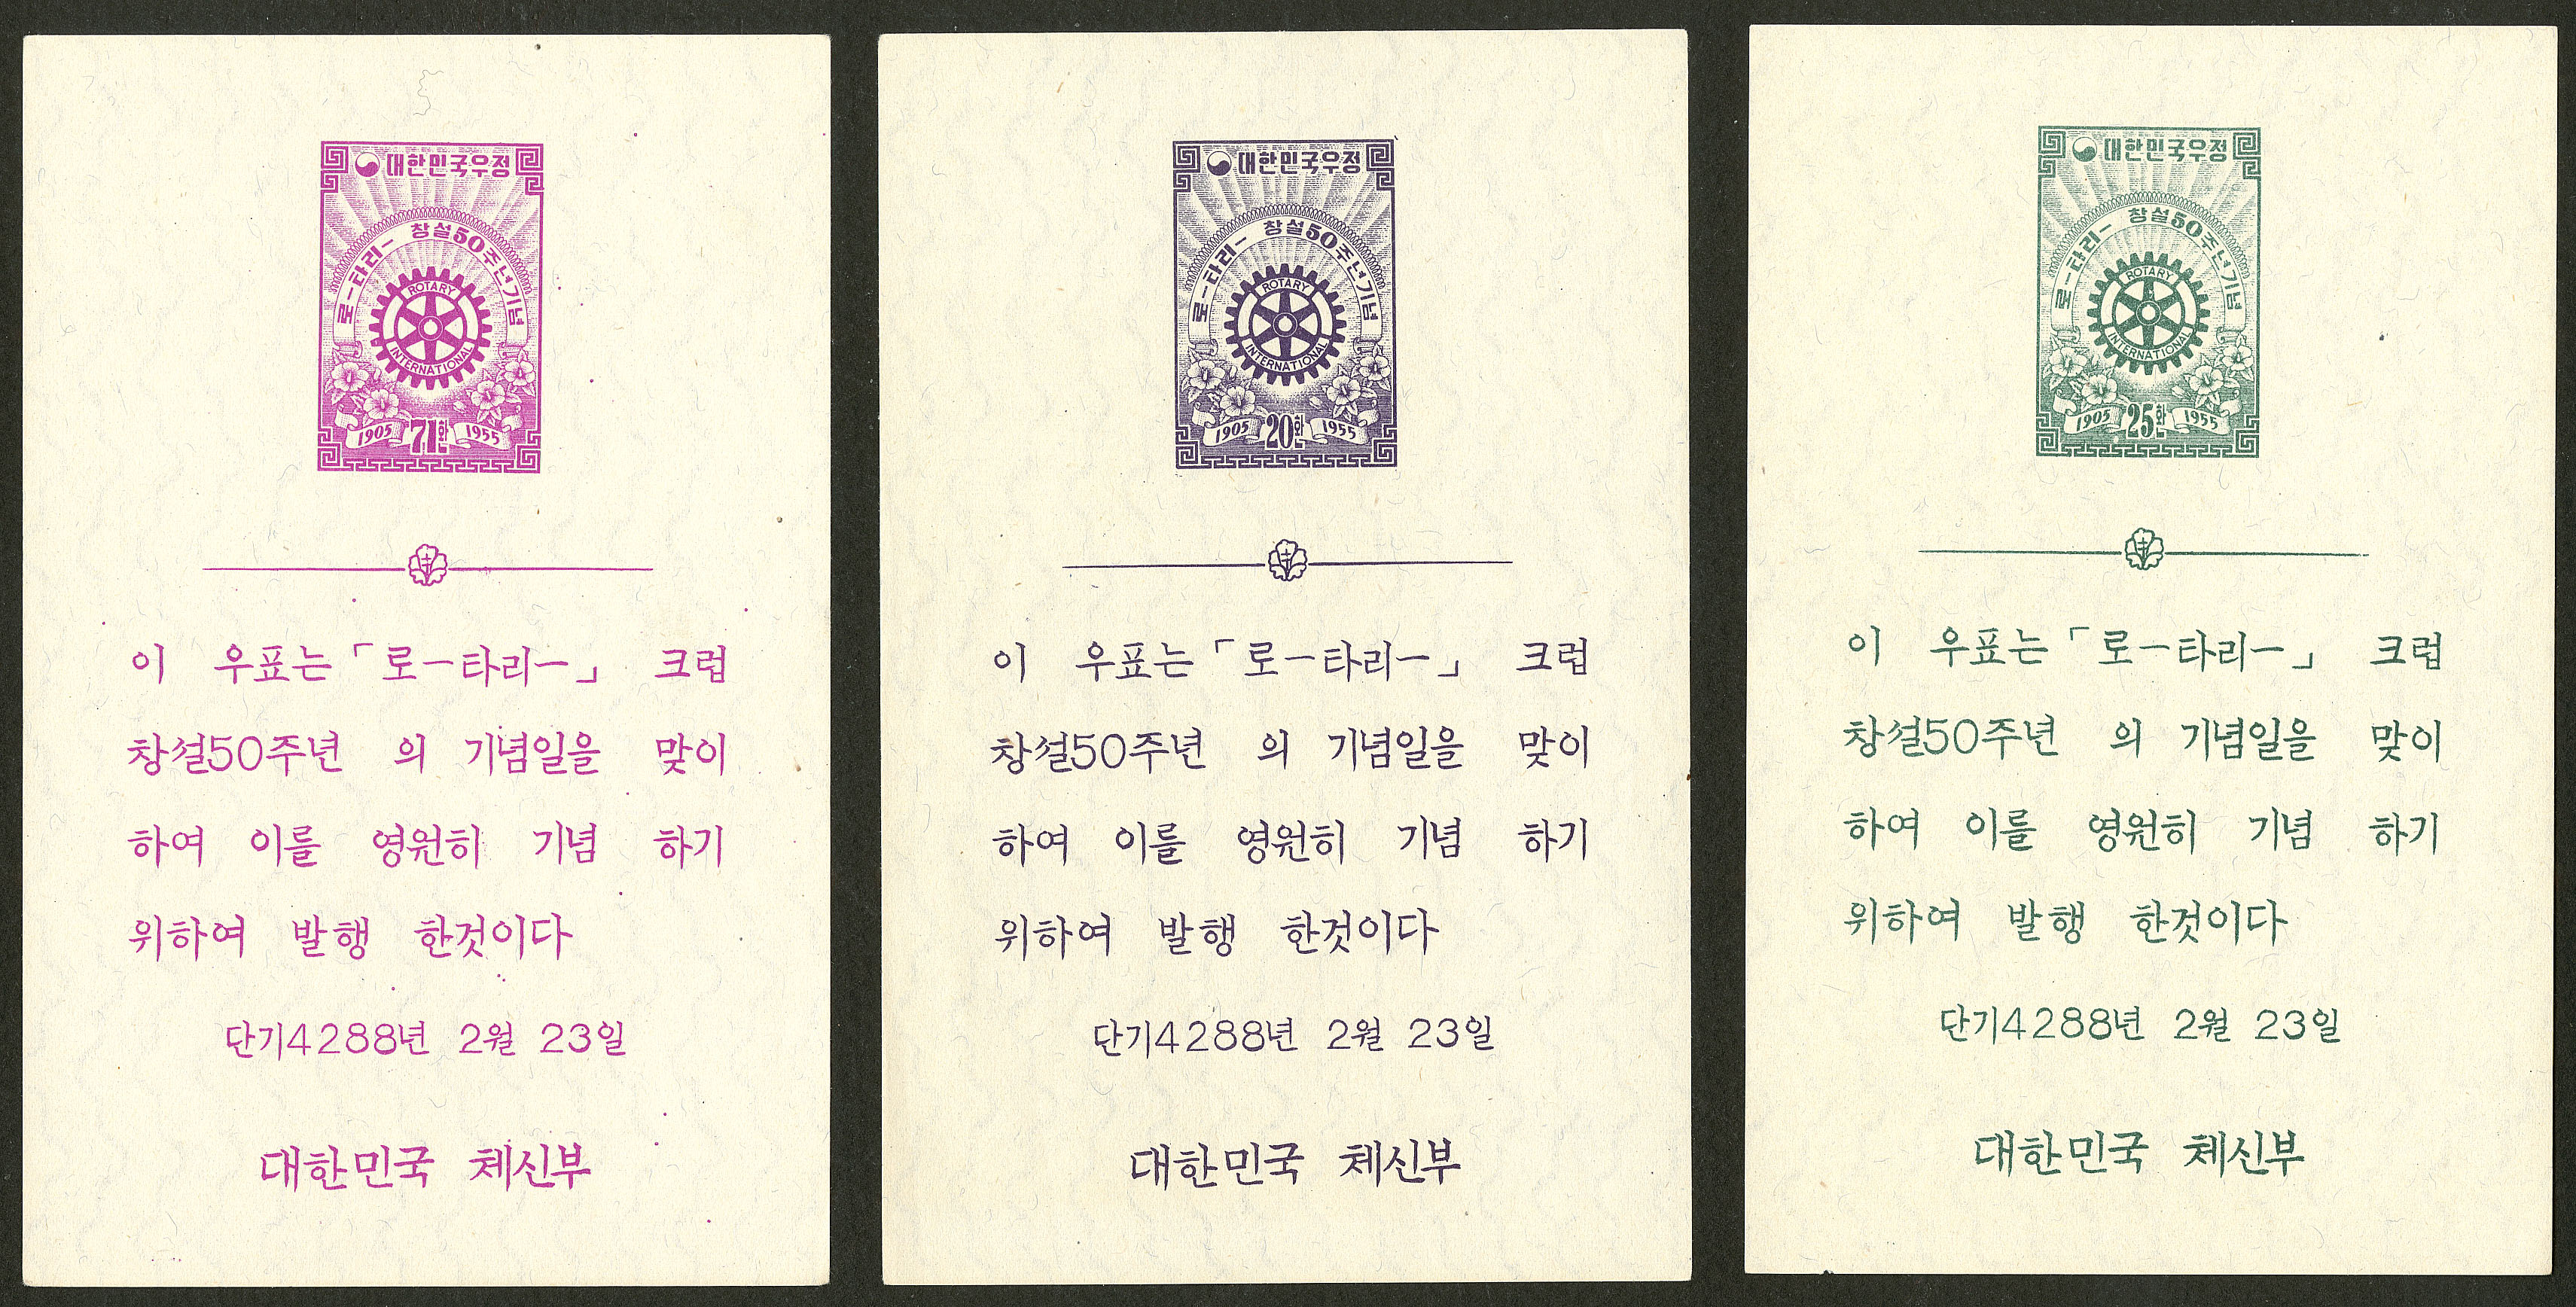 대한민국우정
로ー타리ー 창설50주년기념
ROTARY
INTERNATIONAL
1905 71환 1955
이 우표는「로ー타리ー」 크럽
창설50주년 의 기념일을 맞이
하여 이를 영원히 기념 하기
위하여 발행 한것이다
단기4288년 2월 23일
대한민국 체신부
대한민국우정
로ー타리ー 창설50주년기념
ROTARY
INTERNATIONAL
1905 20환 1955
이 우표는「로ー타리ー」 크럽
창설50주년 의 기념일을 맞이
하여 이를 영원히 기념 하기
위하여 발행 한것이다
단기4288년 2월 23일
대한민국 체신부
대한민국우정
로ー타리ー 창설50주년기념
ROTARY
INTERNATIONAL
1905 25환 1955
이 우표는「로ー타리ー」 크럽
창설50주년 의 기념일을 맞이
하여 이를 영원히 기념 하기
위하여 발행 한것이다
단기4288년 2월 23일
대한민국 체신부